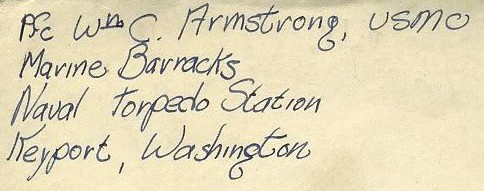 Pfc Wm C. Armstrong, USMC
Marine Barracks
Naval Torpedo Station
Keyport, Washington